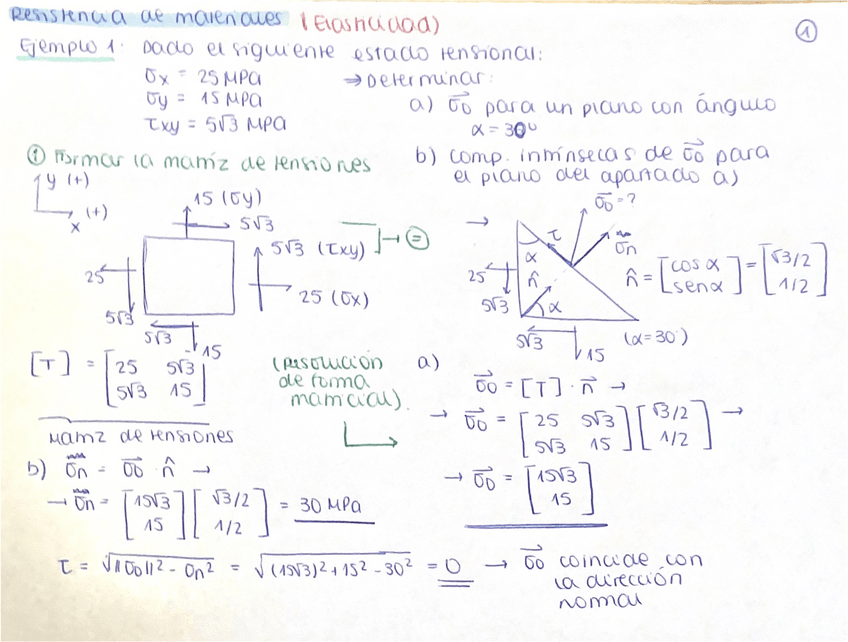 Resistencia de materiales (Elasticidad)
①
Ejemplo 1: Dado el siguiente estado tensional:
σx = 25 MPa
σy = 15 MPa
τxy = 5√3 MPa
→ Determinar:
a) σ⃗0 para un plano con ángulo
α = 30º
b) comp. intrínsecas de σ⃗0 para
el plano del apartado a)
① Formar la matriz de tensiones
y (+)
x (+)
15 (σy)
5√3
5√3 (τxy)
→ ⊜
25
25 (σx)
5√3
5√3
15
→
σ⃗0 = ?
τ
σn
α
n̂
25
5√3
α
5√3
15
(α=30º)
n̂ = [cos α
sen α] = [√3/2
1/2]
[T] = [25 5√3
5√3 15]
Matriz de tensiones
(Resolución
de forma
matricial).
a)
σ⃗0 = [T] · n⃗ →
→ σ⃗0 = [25 5√3
5√3 15] [√3/2
1/2] →
→ σ⃗0 = [15√3
15]
b) σn = σ⃗0 · n̂ →
→ σn = [15√3
15] [√3/2
1/2] = 30 MPa
τ = √||σ0||² - σn² = √(15√3)² + 15² - 30² = 0 → σ⃗0 coincide con
la dirección
normal